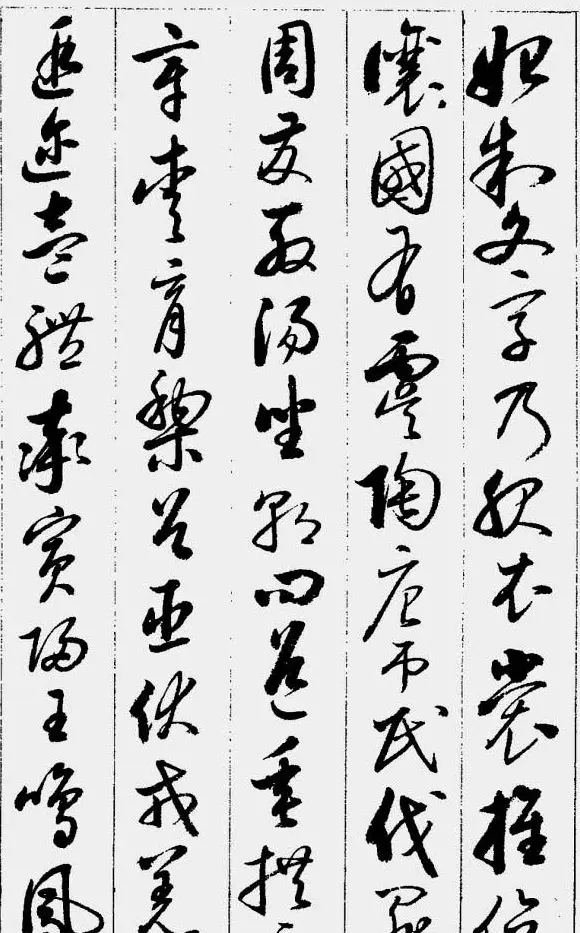 始制文字乃服衣裳推位
讓國有虞陶唐弔民伐罪
周發殷湯坐朝問道垂拱
章愛育黎首臣伏戎羌
遐邇壹體率賓歸王鳴鳳